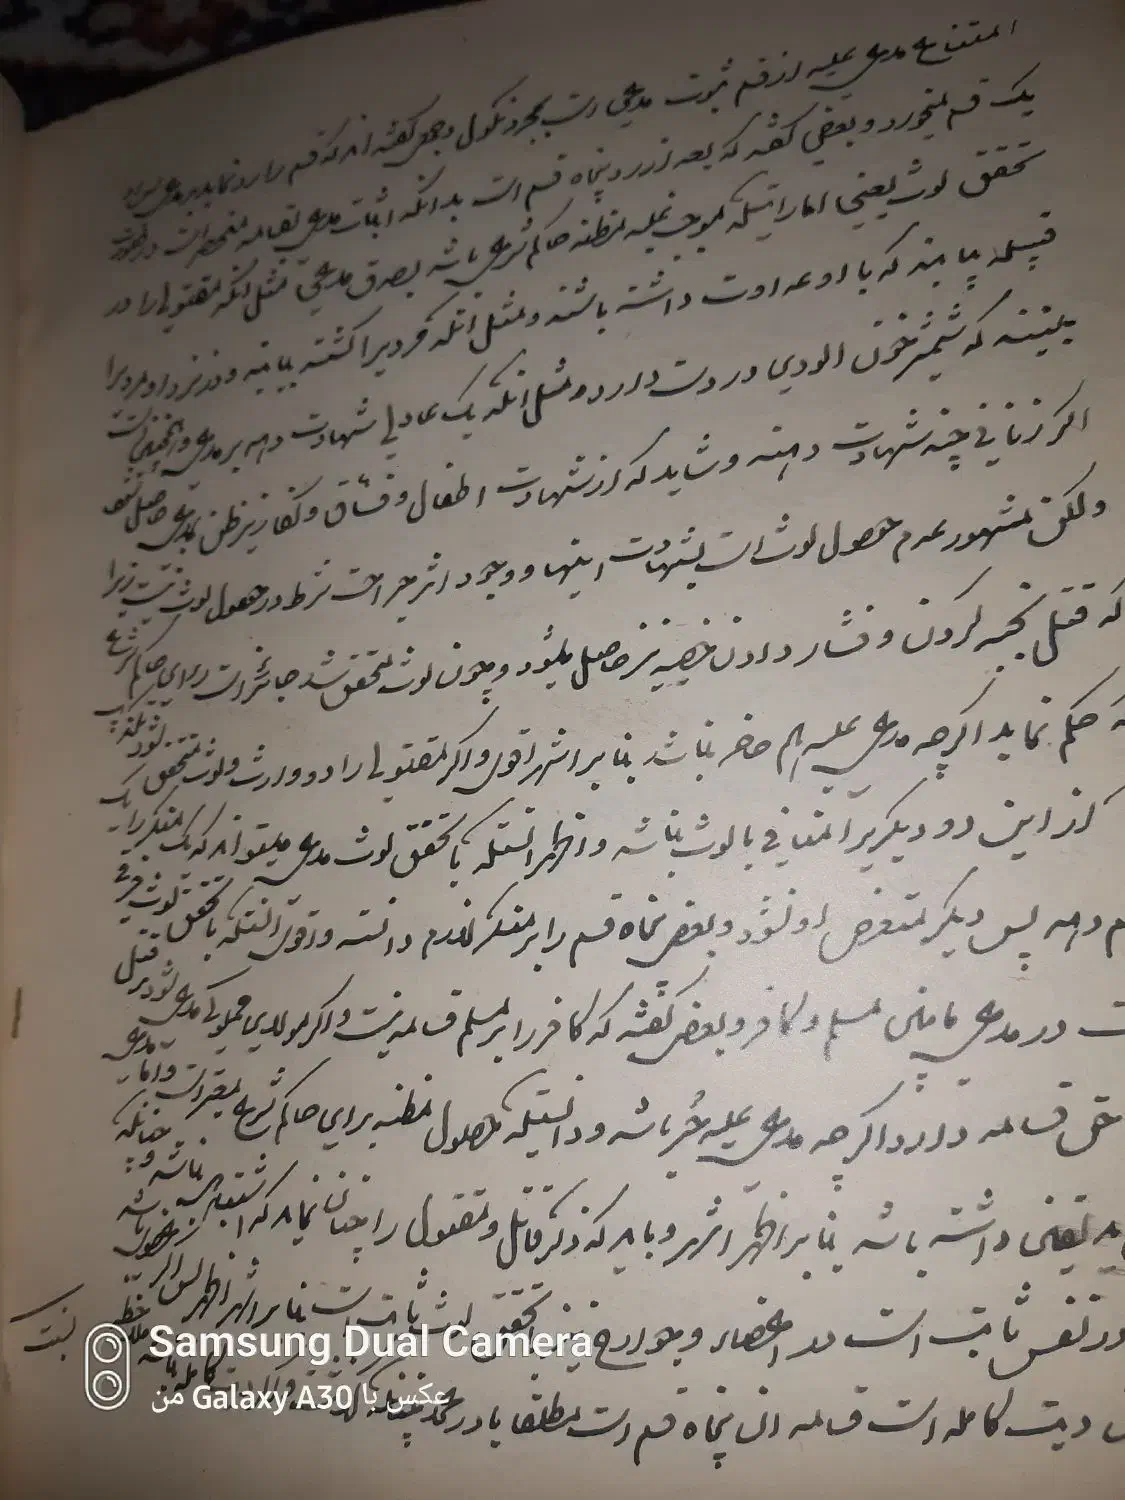 امتناع مدعی علیه از قسم ثبوت مدعی است بمجرد نکول و جمعی گفته اند که قسم را رد نماید بر مدعی
یک قسم میخورد و بعضی گفته که بعد از رد پنجاه قسم است بدانکه اثبات مدعی بقسامه منحصر است در صورت
تحقق لوث یعنی اماراتیکه موجب غلبه مظنه حاکم شرعی باشد بصدق مدعی مثل آنکه مقتولی را در
قبیله بیابند که با او عداوت داشته باشند و مثل آنکه مردیرا کشته بیابند و در نزد او مردیرا
ببینند که شمشیر خون الودی در دست دارد و مثل آنکه یک عادلی شهادت دهد بر مدعی و همچنین است
اگر زنانی چند شهادت دهند و شاید که از شهادت اطفال و فساق و کفار نیز ظن بمدعی حاصل شود
ولکن مشهور عدم حصول لوث است بشهادت اینها و وجود اثر جراحت شرط در حصول لوث نیست زیرا
که قتل بخبه کردن و فشار دادن خصیه نیز حاصل میشود و چون لوث متحقق شد جائز است برای حاکم شرع
که حکم نماید اگرچه مدعی علیه هم حاضر نباشد بنا بر اشهر اقوی و اگر مقتولی را دو وارث و لوث متحقق شود
از این دو دیگریرا منافی با لوث نباشد و اظهر آنستکه با تحقق لوث مدعی میتواند که یک منکر را
دهد پس دیگر متعرض او نشود و بعضی پنجاه قسم را بر منکر لازم دانسته و اقوی آنستکه با تحقق لوث فرقی
در مدعی مابین مسلم و کافر و بعضی گفته که کافر را بر مسلم قسامه نیست و اگر مولای مملوکی مدعی شود بر قتل
حق قسامه دارد اگرچه مدعی علیه حر باشد و دانستیکه حصول مظنه برای حاکم شرع معتبر است و اما مدعی
یقینی داشته باشد بنا بر اظهر اشهر و باید که ذکر قاتل و مقتول را چنان نماید که اشتباهی نباشد و چنانکه
در نفس ثابت است در اعضاء و جوارح نیز با تحقق لوث ثابت است بنا بر اشهر اظهر پس اگر
دیت کامله است قسامه آن پنجاه قسم است مطلقا یا در عمد
نیست
Samsung Dual Camera
عکس با Galaxy A30 من